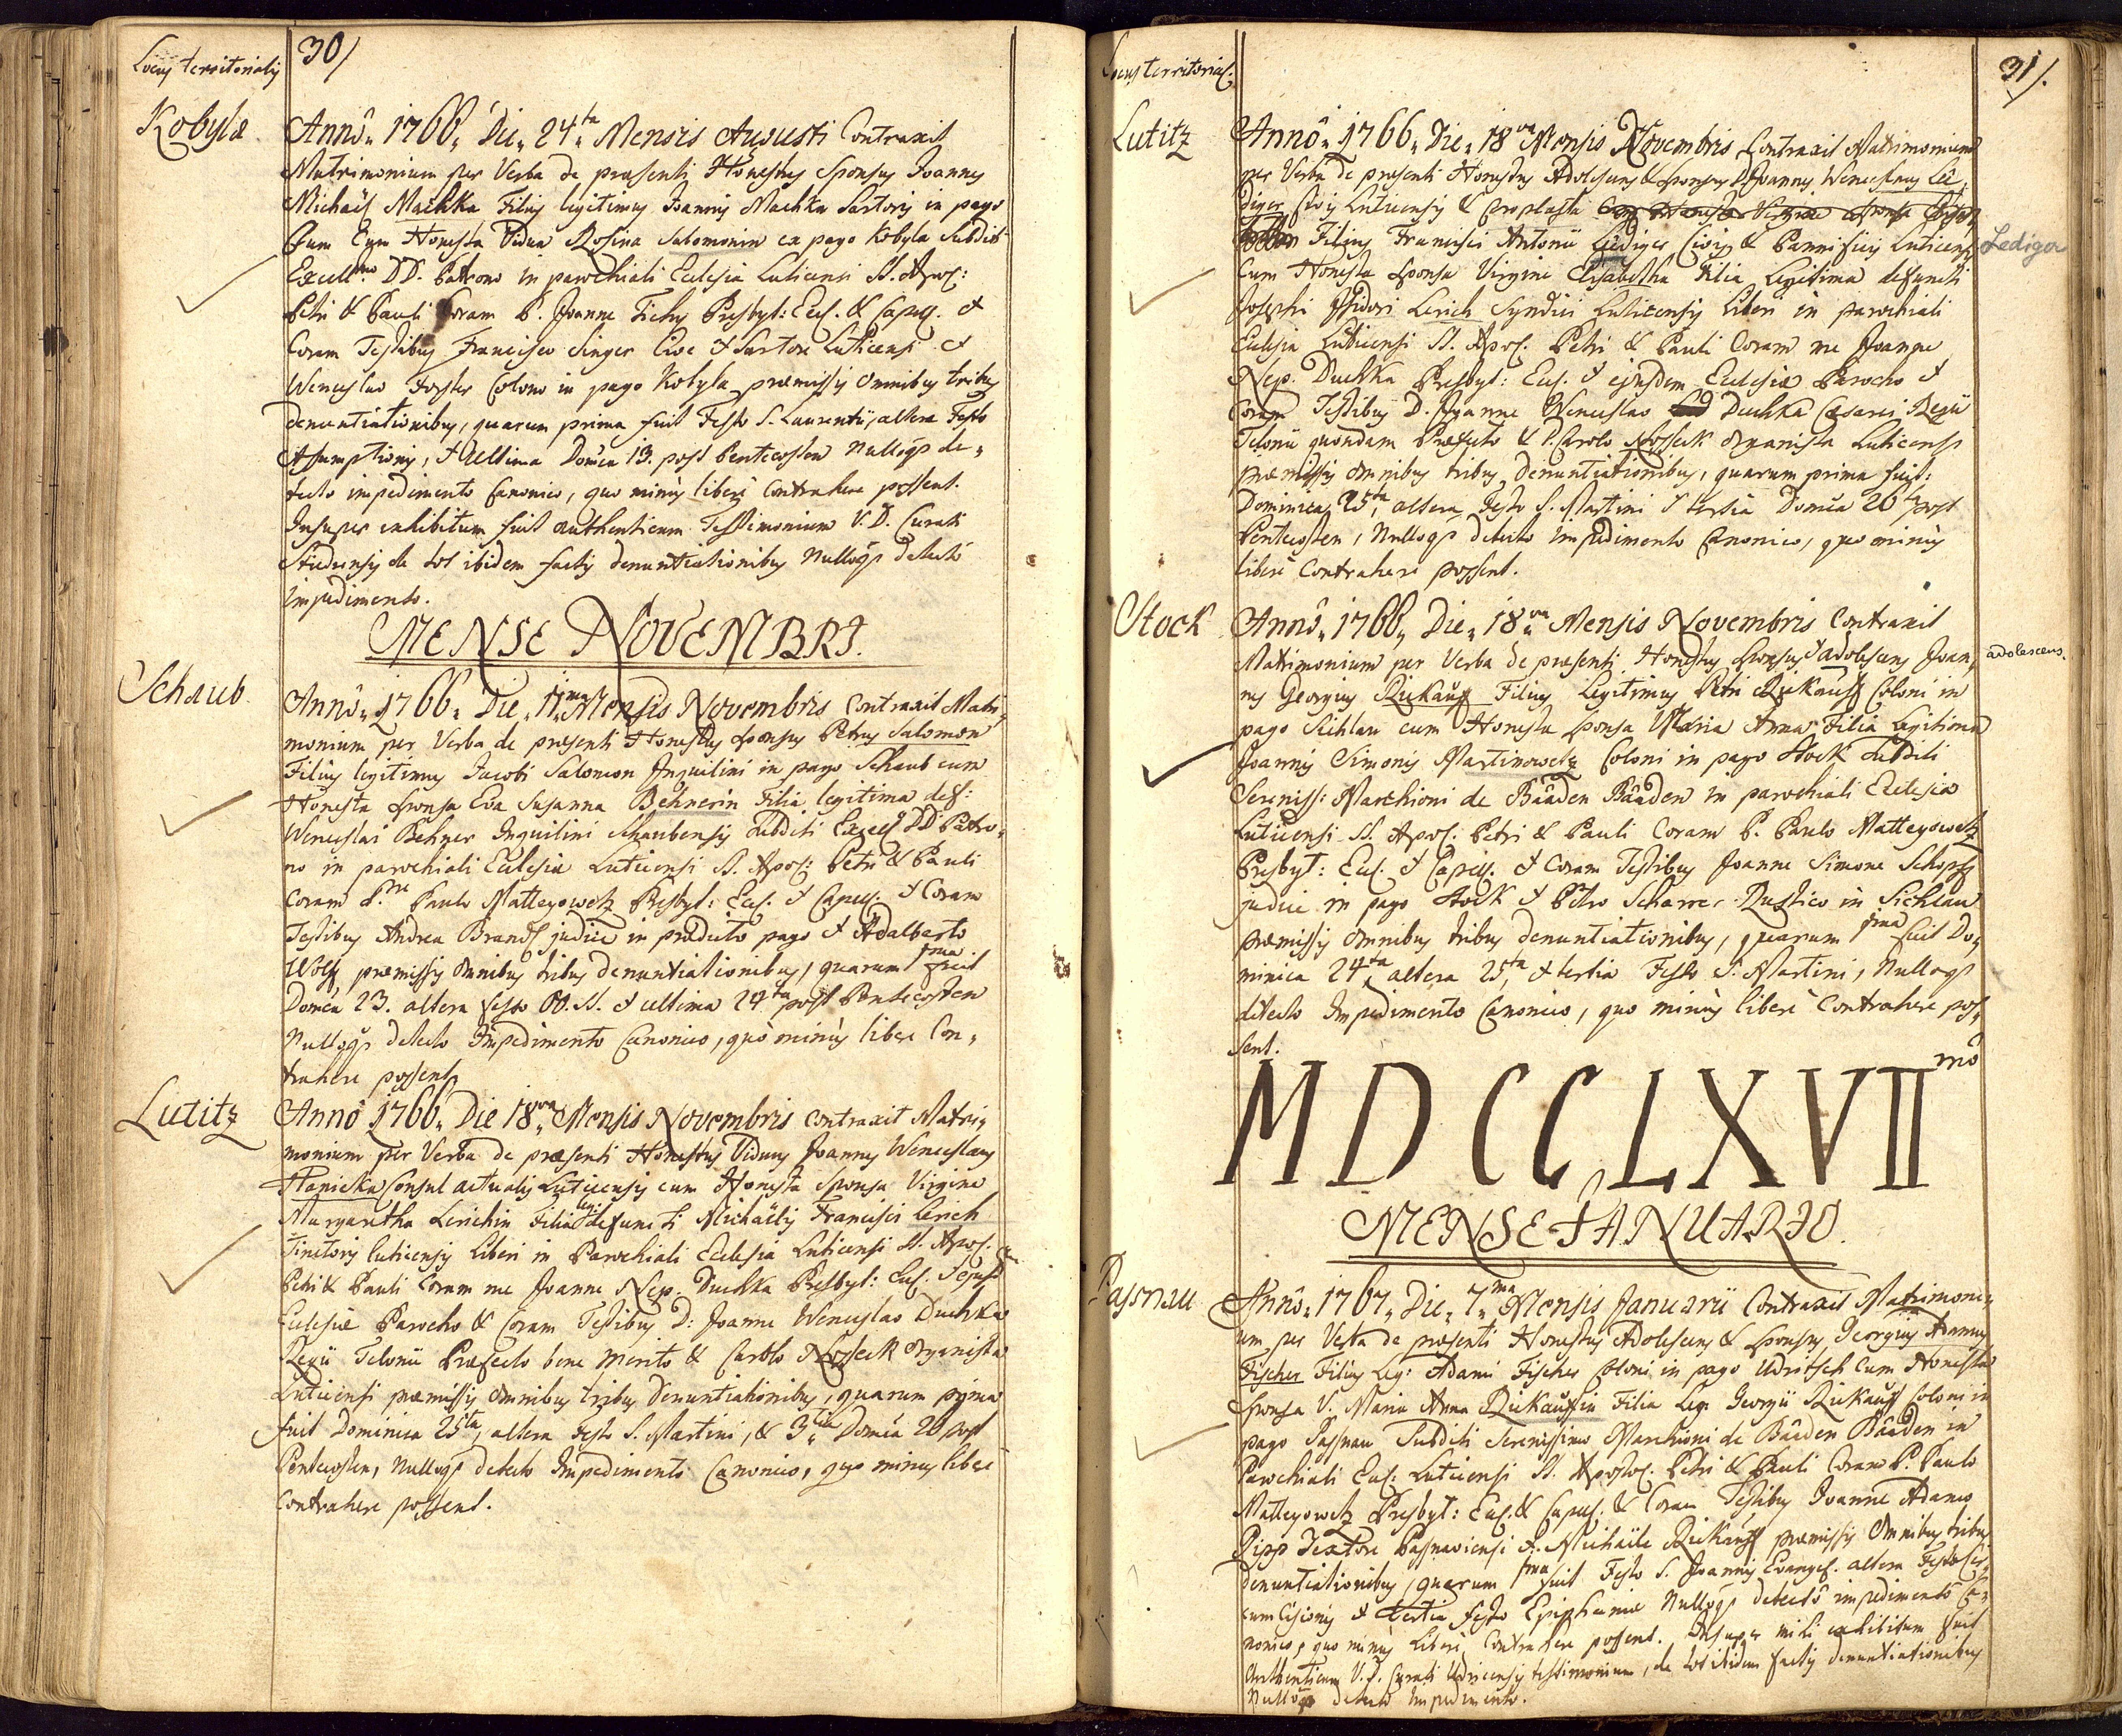 Locus territorialis
30/
Kobyla
Annô. 1766. Die. 24ta Mensis Augusti Contraxit
Matrimonium per Verba de præsenti Honestus Sponsus Joannes
Michaël Machka Filius legitimus Joannis Machka Sartoris in pago
Cum Honesta Vidua Rosina Salomonin ex pago Kobyla Subditi
Excellmo DD. Patrono in parochiali Ecclesia Luticensi SS. Apos:
Petri & Pauli Coram P. Joanne Tichy Presbyt: Eccl. & Capell. &
Coram Testibus Francisco Singer Cive & Sartore Luticensi &
Wenceslao Forster Colono in pago Kobyla præmissis omnibus tribus
denuntiationibus, quarum prima fuit Festo S. Laurentii, altera Festo
Assumptionis, & Ultima Domca 13. post Pentecosten Nulloq; de-
tecto impedimento Canonico, quo minus liberè Contrahere possent.
Insuper exhibitum fuit authenticum Testimonium V. D. Curati
de tot ibidem factis denuntiationibus Nulloq; detectô
impedimento.
MENSE NOVEMBRI.
Schaub
Annô. 1766. Die. 11ma Mensis Novembris Contraxit Matri-
monium per Verba de præsenti Honestus Sponsus Petrus Salomon
Filius legitimus Jacobi Salomon Inquilini in pago Schaub cum
Honesta Sponsa Eva Susanna Behnerin Filia legitima def:
Wenceslai Behner Inquilini Schaubensis Subditi Excell DD Patro-
no in parochiali Ecclesia Luticensi SS. Apos: Petri & Pauli
Coram P. Paulo Matteyowetz Presbyt: Eccl. & Capell. & Coram
Testibus Andrea Brandl judice in prædicto pago & Adalberto
Wolf, præmissis omnibus tribus denuntiationibus, quarum 1ma fuit
Domca 23. altera festo OO. SS. & ultima 24ta post Pentecosten
Nulloq; detecto Impedimento Canonico, quò minùs libere Con-
trahere possent.
Lutitz
Annô 1766. Die 18va Mensis Novembris contraxit Matri-
monium per Verba de præsenti Honestus Viduus Joannes Wenceslaus
Hanicka Consul actualis Luticensis cum Honesta Sponsa Virgine
Margaretha Lerichin Filia leg: defuncti Michaëlis Francisci Lerich
Tinctoris luticensis Liberi in Parochiali Ecclesia Luticensi SS. Apos.
Petri & Pauli Coram me Joanne Nep. Duchka Presbyt: Eccl. & ejusdem
Ecclesiæ Parocho & Coram Testibus D: Joanne Wenceslao Duchka
Regii Telonii Præfecto bene merito & Carolo Nosseck Organista
Luticensi præmissis omnibus tribus denuntiationibus, quarum prima
fuit Dominica 25ta, altera Festo S. Martini, & 3tia Domca 26 post
Pentecosten, Nulloq; detecto Impedimento Canonico, quo minus liberè
Contrahere possent.
Locus territorial:
31/.
Lutitz
Annô. 1766. Die. 18va Mensis Novembris Contraxit Matrimonium
per Verba de præsenti Honestus Adolescens & Sponsus D. Joannes Wenceslaus Le-
diger Civis Luticensis &
Filius Francisci Antonii Lediger Civis & Pannificis Luticensis
Lediger
Cum Honesta Sponsa Virgine Elisabetha Filia Legitima defuncti
Josephi Isidori Lerich Syndici Luticensis Liberi in parochiali
Ecclesia Luticensi SS. Apos. Petri & Pauli Coram me Joanne
Nep. Duchka Presbyt: Eccl. & ejusdem Ecclesiæ Parocho &
Coram Testibus D. Joanne Wenceslao Duchka Cæsarei Regii
Telonii quondam Præfecto & Carolo Nosseck Organista Luticensi
præmissis omnibus tribus denuntiationibus, quarum prima fuit:
Dominica 25ta, altera Festo S. Martini & tertia Domca 26ta post
Pentecosten, Nulloq; detecto Impedimento Canonico, quo minùs
liberè Contrahere possent.
Stock
Annô. 1766. Die. 18va Mensis Novembris Contraxit
Matrimonium per Verba de præsenti Honestus Sponsus & adolescens Joan-
adolescens.
nes Georgius Rickauff Filius Legitimus Petri Rickauff Coloni in
pago Sichlau cum Honesta Sponsa V. Maria Anna Filia Legitima
Joannis Simonis Martinowetz Coloni in pago Stock Subditi
Sereniss: Marchioni de Baaden Baaden in parochiali Ecclesia
Luticensi SS. Apos: Petri & Pauli Coram P. Paulo Matteyowetz
Presbyt: Eccl. & Capell. & Coram Testibus Joanne Simone Schopf
judice in pago Stock & Petro Scharrer Rustico in Sichlau
præmissis omnibus tribus denuntiationibus, quarum 1ma fuit Do-
minica 24ta, altera 25ta, & tertia Festo S. Martini, Nulloq;
detecto Impedimento Canonico, quo minùs liberè Contrahere pos-
sent.
MDCCLXVII mô
MENSE JANUARIO.
Passnau
Annô. 1767. Die. 7ma Mensis Januarii Contraxit Matrimoni-
um per Verba de præsenti Honestus Adolescens & Sponsus Georgius Adamus
Fischer Filius Leg: Adami Fischer Coloni in pago Udritsch Cum Honesta
Sponsa V. Maria Anna Rickauffin Filia Leg Georgii Rickauff Coloni in
pago Passnau Subditi Serenissimo Marchioni de Baaden Baaden in
Parochiali Eccl. Luticensi SS. Apostol. Petri & Pauli Coram P. Paulo
Matteyowetz Presbyt: Eccl. & Capell. & Coram Testibus Joanne Adamo
Ripp Textore Passnaviensi & Michaële Rickauff præmissis Omnibus tribus
denuntiationibus, quarum 1ma fuit Festo S. Joannis Evangel. altera Festo Cir-
cumcisionis & tertia festo Epiphaniæ Nulloq; detectô impedimentô Ca-
nonico, quo minùs Liberè Contrahere possent. Insuper mihi exhibitum fuit
Authenticum V. D. Curati Udricensis testimonium, de tot ibidem factis denuntiationibus
Nulloq; detecto Impedimento.